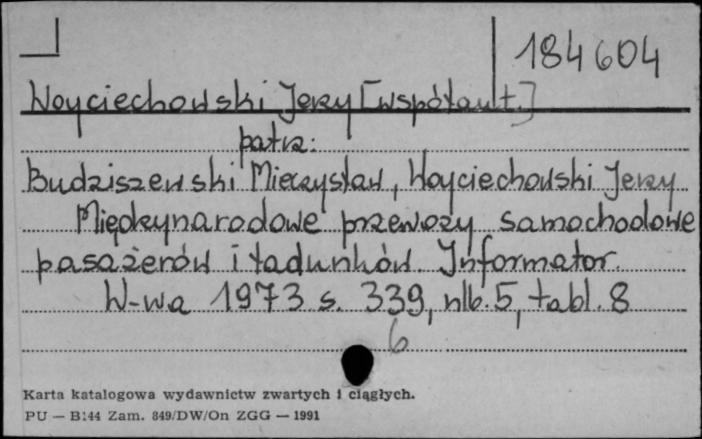 184604
Woyciechowski Jerzy [współaut.]
patrz:
Budziszewski Mieczysław, Woyciechowski Jerzy
Międzynarodowe przewozy samochodowe
pasażerów i ładunków. Informator.
W-wa 1973 s. 339, nlb. 5, tabl. 8
6
Karta katalogowa wydawnictw zwartych i ciągłych.
PU — B144 Zam. 849/DW/On ZGG — 1991